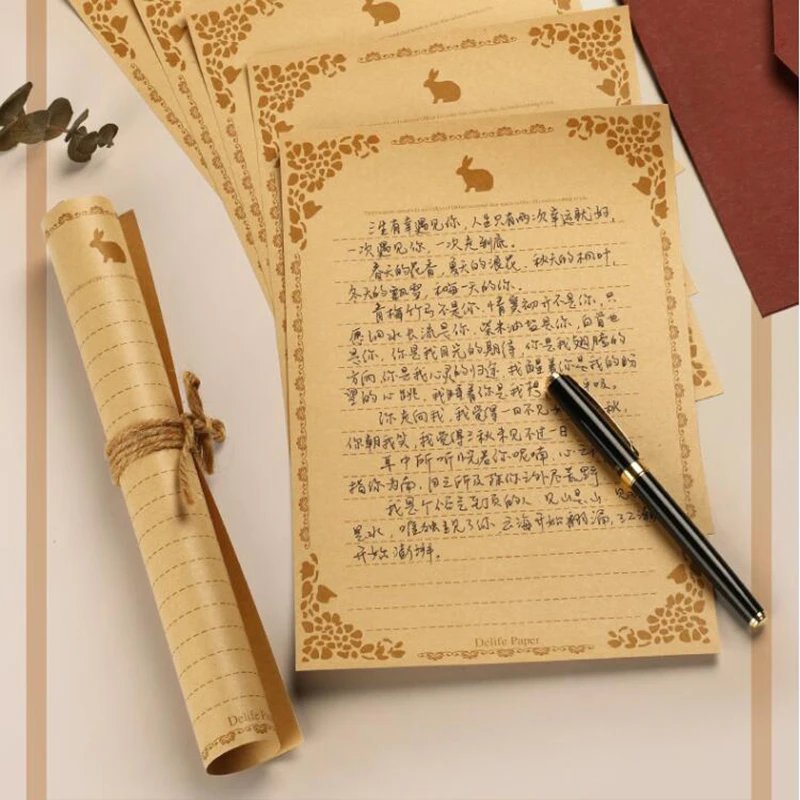 三生有幸遇见你，人生只有两次幸运就好，
一次遇见你，一次走到底。
春天的花香，夏天的浪花，秋天的枫叶，
冬天的飘雪，和每一天的你。
青梅竹马不是你，情窦初开不是你，只
愿细水长流是你，柴米油盐是你，白首也
是你，你是我目光的期待，你是我翅膀的
方向，你是我心灵的归途，我醒着你是我的盼
望的心跳，我睡着你是我
你走向我，我觉得一日不见 秋，
你朝我笑，我觉得三秋未见不过一日
耳中所听皆是你呢喃，心之
指你为南，目之所及除你之外尽荒野
我是个俗气至顶的人，见山是山，见
是水，唯独见了你，云海开始翻涌，江潮
开始澎湃。
Delife Paper
Delife